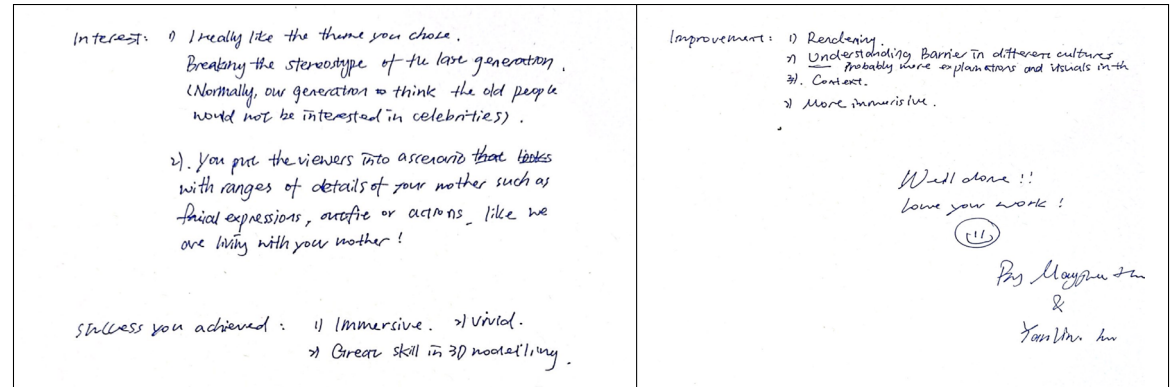 Interest: 1) I really like the theme you chose.
Breaking the stereostype of the last generation.
(Normally, our generation to think the old people
would not be interested in celebrities).
2). You put the viewers into a scenario that looks
with ranges of details of your mother such as
facial expressions, outfit or actions, like we
are living with your mother!
Success you achieved: 1) Immersive. 2) Vivid.
3) Great skill in 3D modelling.
Improvement: 1) Rendering.
2) Understanding Barrier in different cultures
Probably more explanations and visuals in th
3). Context.
2) More immerisive.
Well done!!
Love your work!
By
&
Yanlin